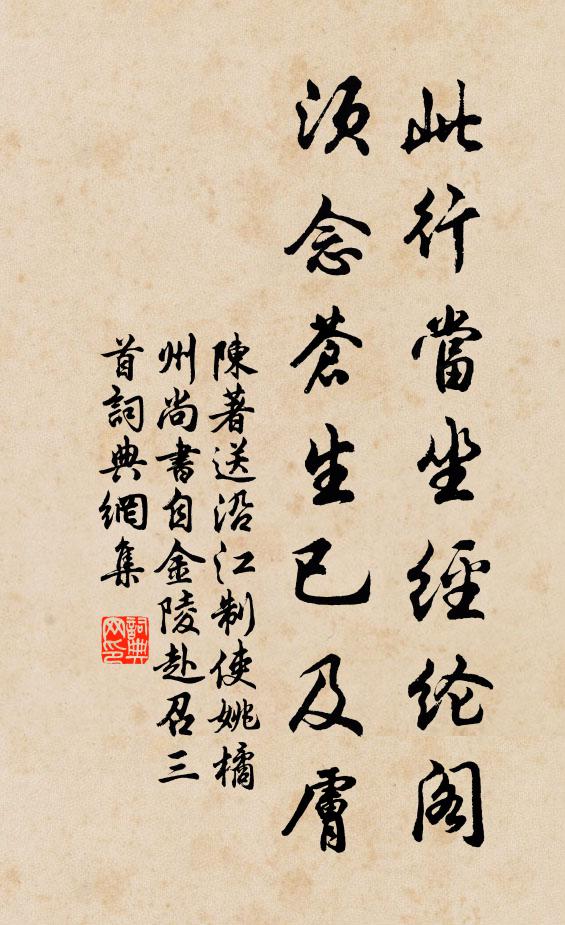 此行當坐經纶阁
須念蒼生已及膚
陳著送沿江制使姚橘
州尚書自金陵赴召三
首詞典網集
詞典
网印